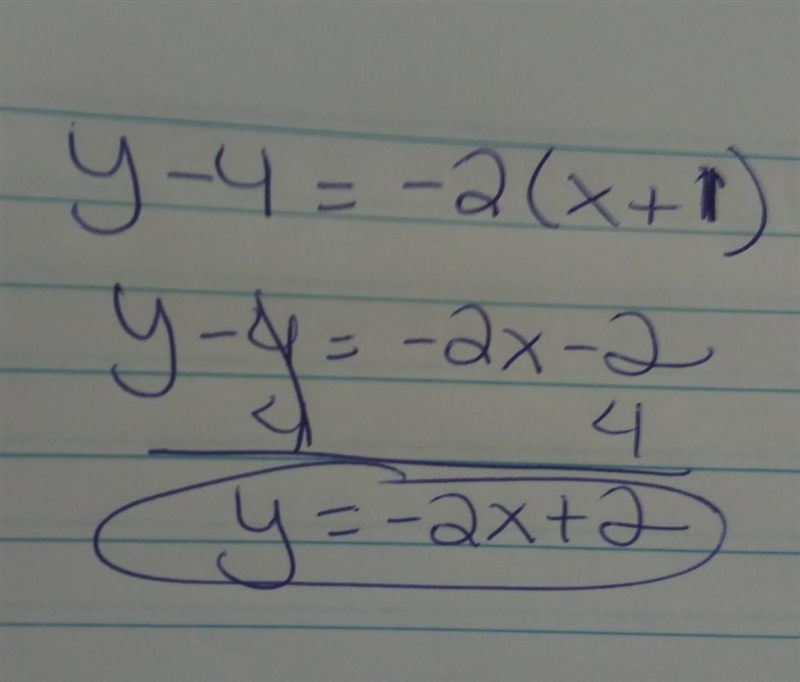 y-4=-2(x+1)
y-4=-2x-2
4 4
y=-2x+2